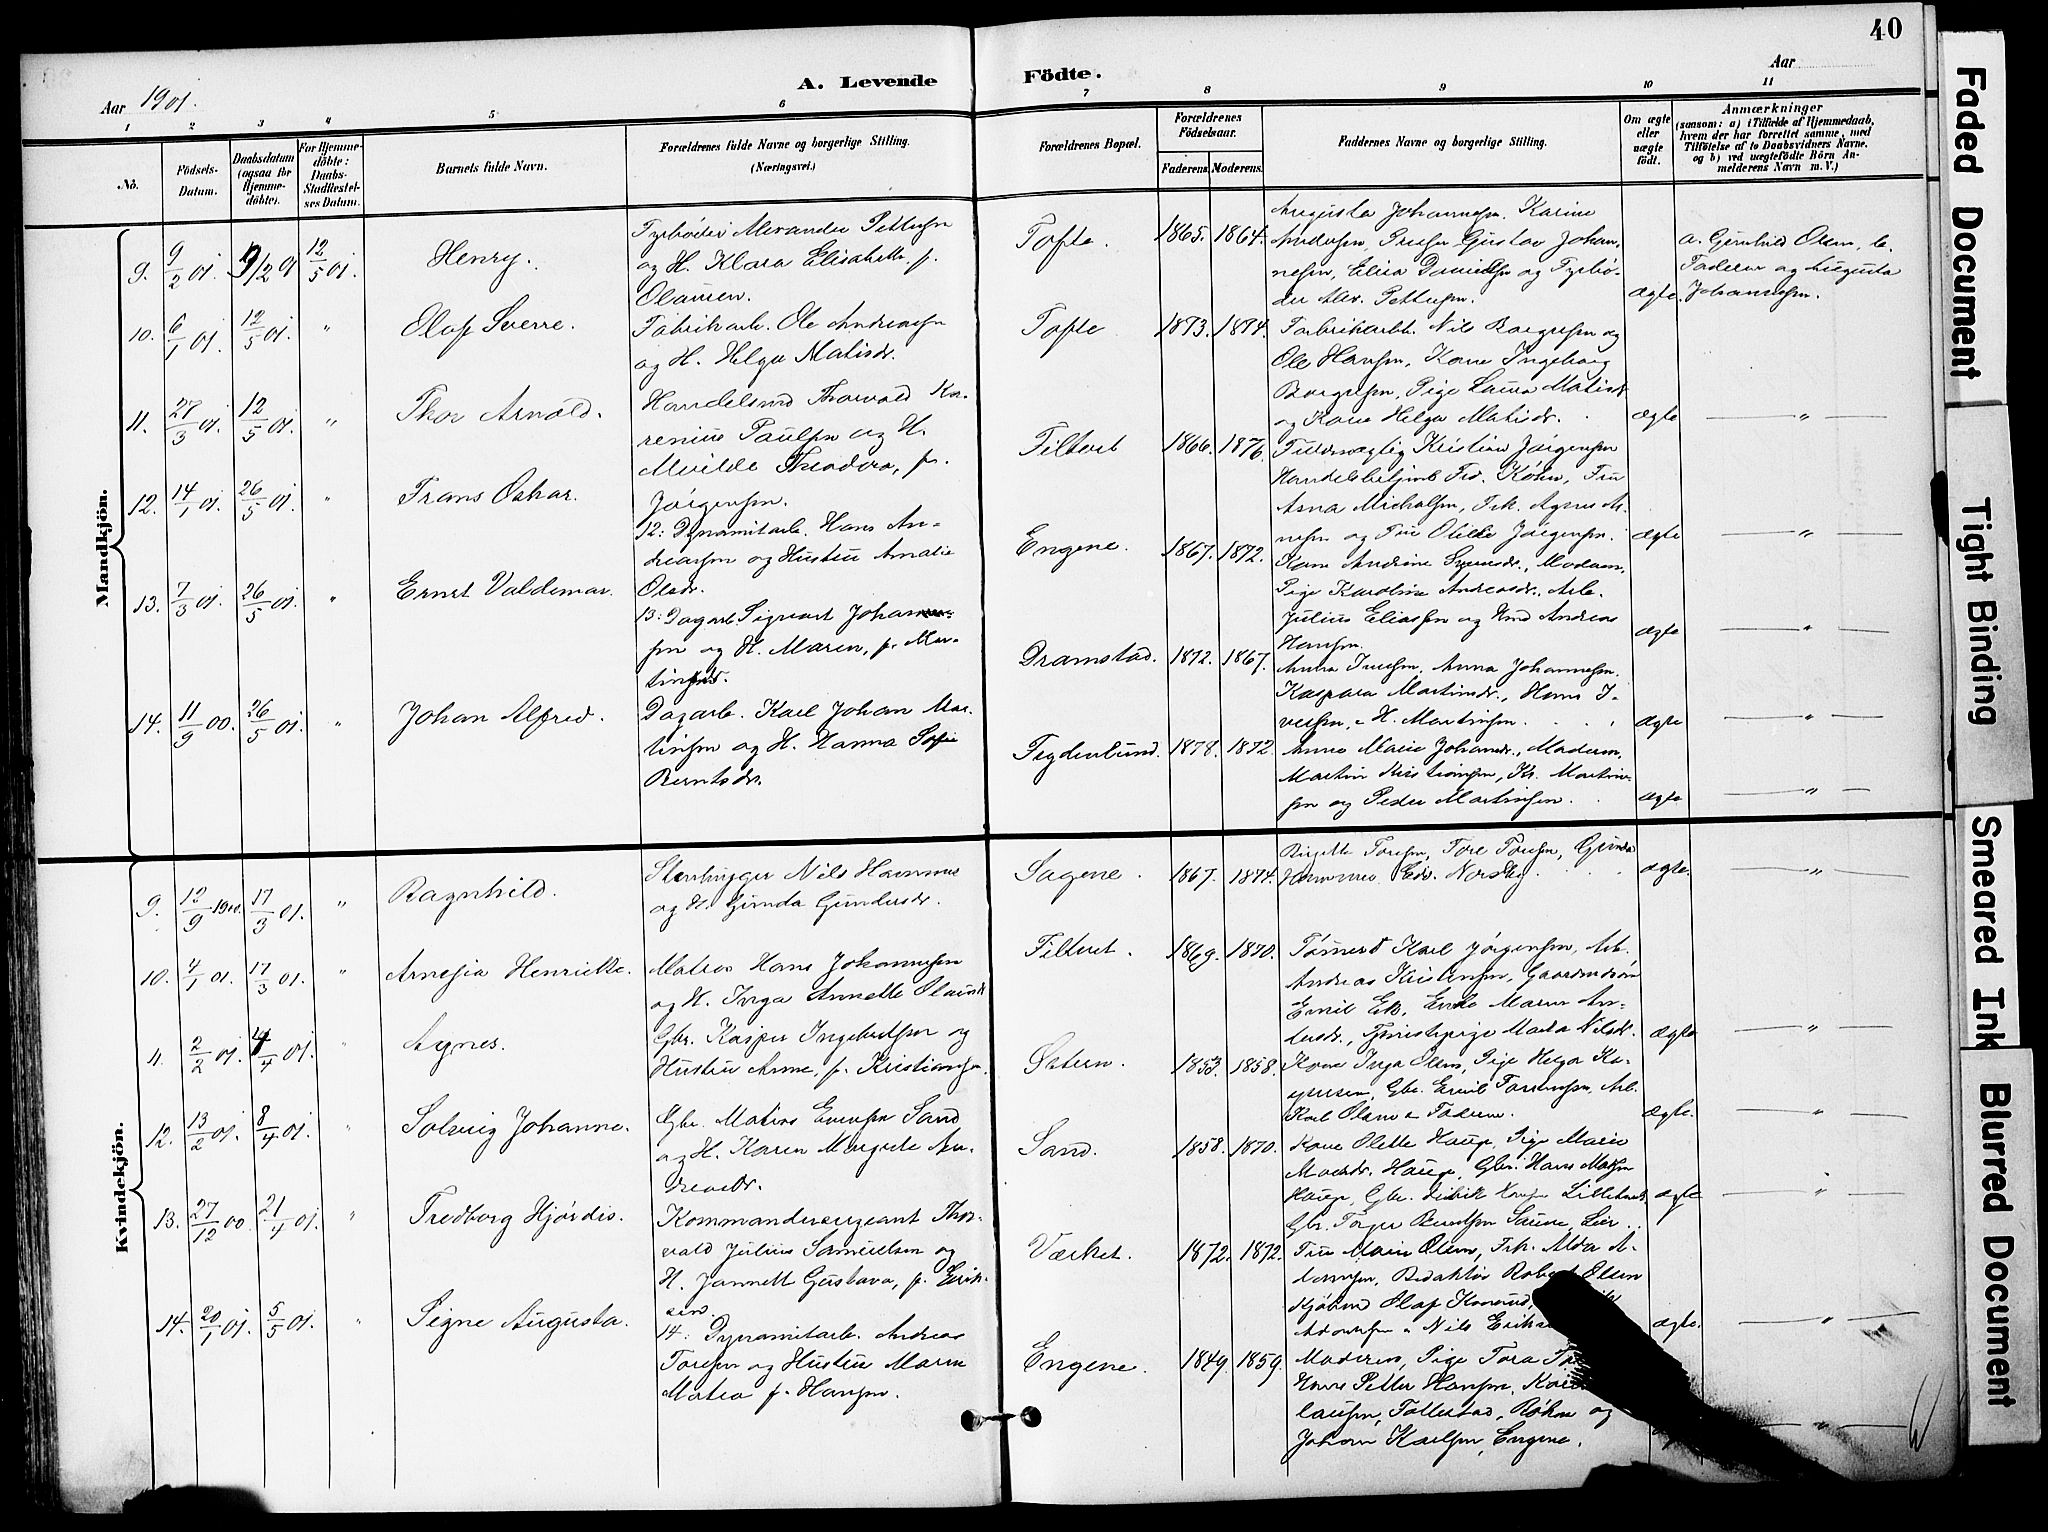 40
A. Levende Födte.
Aar 1901.
Aar
1 2 3 4 5 6 7 8 9 10 11
No.
Födsels-
Datum.
Daabsdatum
(ogsaa for
Hjemme-
döbte).
For Hjemme-
döbte:
Daabs-
Stadfæstel-
ses Datum.
Barnets fulde Navn.
Forældrenes fulde Navne og borgerlige Stilling.
(Næringsvei.)
Forældrenes Bopæl.
Forældrenes
Födselsaar.
Faderens. Moderens.
Faddernes Navne og borgerlige Stilling.
Om ægte
eller
uægte
født.
Anmærkninger
(saasom: a) i Tilfælde af Hjemmedaab,
hvem der har forrettet samme, med
Tilföielse af to Daabsvidners Navne.
og b) ved uægtefödte Börn An-
melderens Navn m. V.)
Mandkjön.
9. 9/2 01. 9/2 01 12/5 01. Henry.
Fyrbøder Alexander Pettersen
og H. Klara Elisabeth, f.
Olausen.
Tofte. 1865. 1864.
Augusta Johannesen. Karine
Andersen, Gustav Johan-
nesen, Elisa Danielsen og Fyrbø-
der Alex. Pettersen.
ægte.
a. Gernhild Olsen, b.
Faderen og Augusta
Johannesen.
10. 6/1 01. 12/5 01. " Olaf Sverre.
Fabrikarb. Ole Andreasen
og H. Helga Matisdr.
Tofte 1873. 1874.
Fabrikarb. Nils Borgersen og
Ole Hansen, Kone Ingeborg
Borgersen, Pige Laura Matisdr
og Kone Helga Matisdr.
ægte "
11. 27/3 01. 12/5 01. " Thor Arnold.
Handelsmd Thorvald Ka-
renius Paulsen og H.
Mvilde Theodora, f.
Jörgensen.
Filtvet 1866. 1876.
Fuldmægtig Kristian Jörgensen
Handelsbetjent Fred. Køhn, Fru
Anna Michalsen, Frk. Agnes Ar-
nesen og Fru Otilie Jörgensen.
ægte "
12. 14/1 01. 26/5 01. " Frans Oskar.
12: Dynamitarb. Hans An-
dreassen og Hustru Amalie
Olsdr.
Engene. 1867. 1872.
Kone Andrine Syversdr., Moderen,
Pige Karoline Andreasdr., Arb.
Julius Eliassen og Und Andreas
Hansen.
ægte "
13. 7/3 01. 26/5 01. " Ernst Valdemar.
13: Dagarb. Sigvart Johanne-
sen og H. Maren, f. Mar-
tinsdr.
Dramstad. 1872. 1867.
Anna Iversen, Anna Johannesen,
Kaspara Martinsdr., Hans I-
versen, - H. Martinsen.
ægte "
14. 11/9 00. 26/5 01. " Johan Alfred.
Dagarb. Karl Johan Mar-
tinsen og H. Hanna Sofie
Berntsdr.
Frydenlund. 1878. 1872.
Anne Marie Johansdr., Moderen,
Martin Kristiansen, Kr. Martin-
sen og Peder Martinsen.
ægte "
Kvindekjön.
9. 12/9 1900. 17/3 01. " Ragnhild.
Stenhugger Nils Hammer
og H. Gunda Gundersdr.
Sagene. 1867. 1874.
Birgitte Toresen, Tore Toresen, Gunda
Hammer. Edv. Nersby.
ægte. "
10. 4/1 01. 17/3 01. " Arnesia Henriette.
Matros Hans Johannesen
og H. Inga Annette Olausdr
Filtvet. 1869. 1870.
Tømmermd Karl Jörgensen, Arb.
Andreas Kristensen, Gaardmdssøn
Emil Ek, Enke Maren An-
dersdr., Tjenestepige Marta Nilsdr.
ægte "
11. 2/2 01. 4/4 01. " Agnes.
Gbr. Kasper Ingebretsen og
Hustru Anne, f. Kristiansen.
Sætern. 1853. 1858.
Kone Inga Olsen, Pige Helga Ka-
spersen, Gbr. Emil Torstensen, Arb.
Karl Olsen & Faderen.
ægte. "
12. 13/2 01. 8/4 01. " Solveig Johanne.
Gbr. Matias Evensen Sand
og H. Karen Margrete An-
dreasdr.
Sand. 1858. 1870.
Kone Olette Hauge, Pige Marie
Madsdr. Hauge, Gbr. Hans Madsen
Hauge, Gbr. Lillehval,
Gbr. Torger Berntsen Saue, Lier.
ægte "
13. 27/12 00. 21/4 01. " Fredborg Hjørdis.
Kommandersergeant Thor-
vald Julius Samuelsen og
H. Jannett Gustava, f. Erik-
sen.
Værket. 1872. 1872.
Fru Marie Olsen, Frk. Alda A-
damsen, Redaktør Robert Olsen
Kjøbmd Olaf Konrud,
Adamsen & Nils Eriks
ægte. "
14. 20/1 01. 5/5 01. " Signe Augusta.
14: Dynamitarb. Andreas
Toresen og Hustru Maren
Matea f. Hansen.
Engene. 1849. 1859.
Moderen, Pige Tora
Hans Petter Hansen, Karl
lausen, Tollestad, Røhne og
Johan Karlsen, Engene.
"
Faded Document
Tight Binding
Smeared Ink
Blurred Document